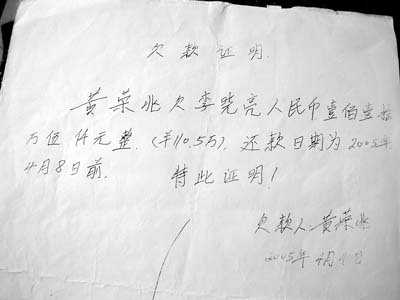 欠款证明.
黄荣兆欠李晓亮人民币壹佰壹拾
万伍仟元整.(￥110.5万).还款日期为2005年
4月8日前. 特此证明!
欠款人:黄荣兆
2005年4月